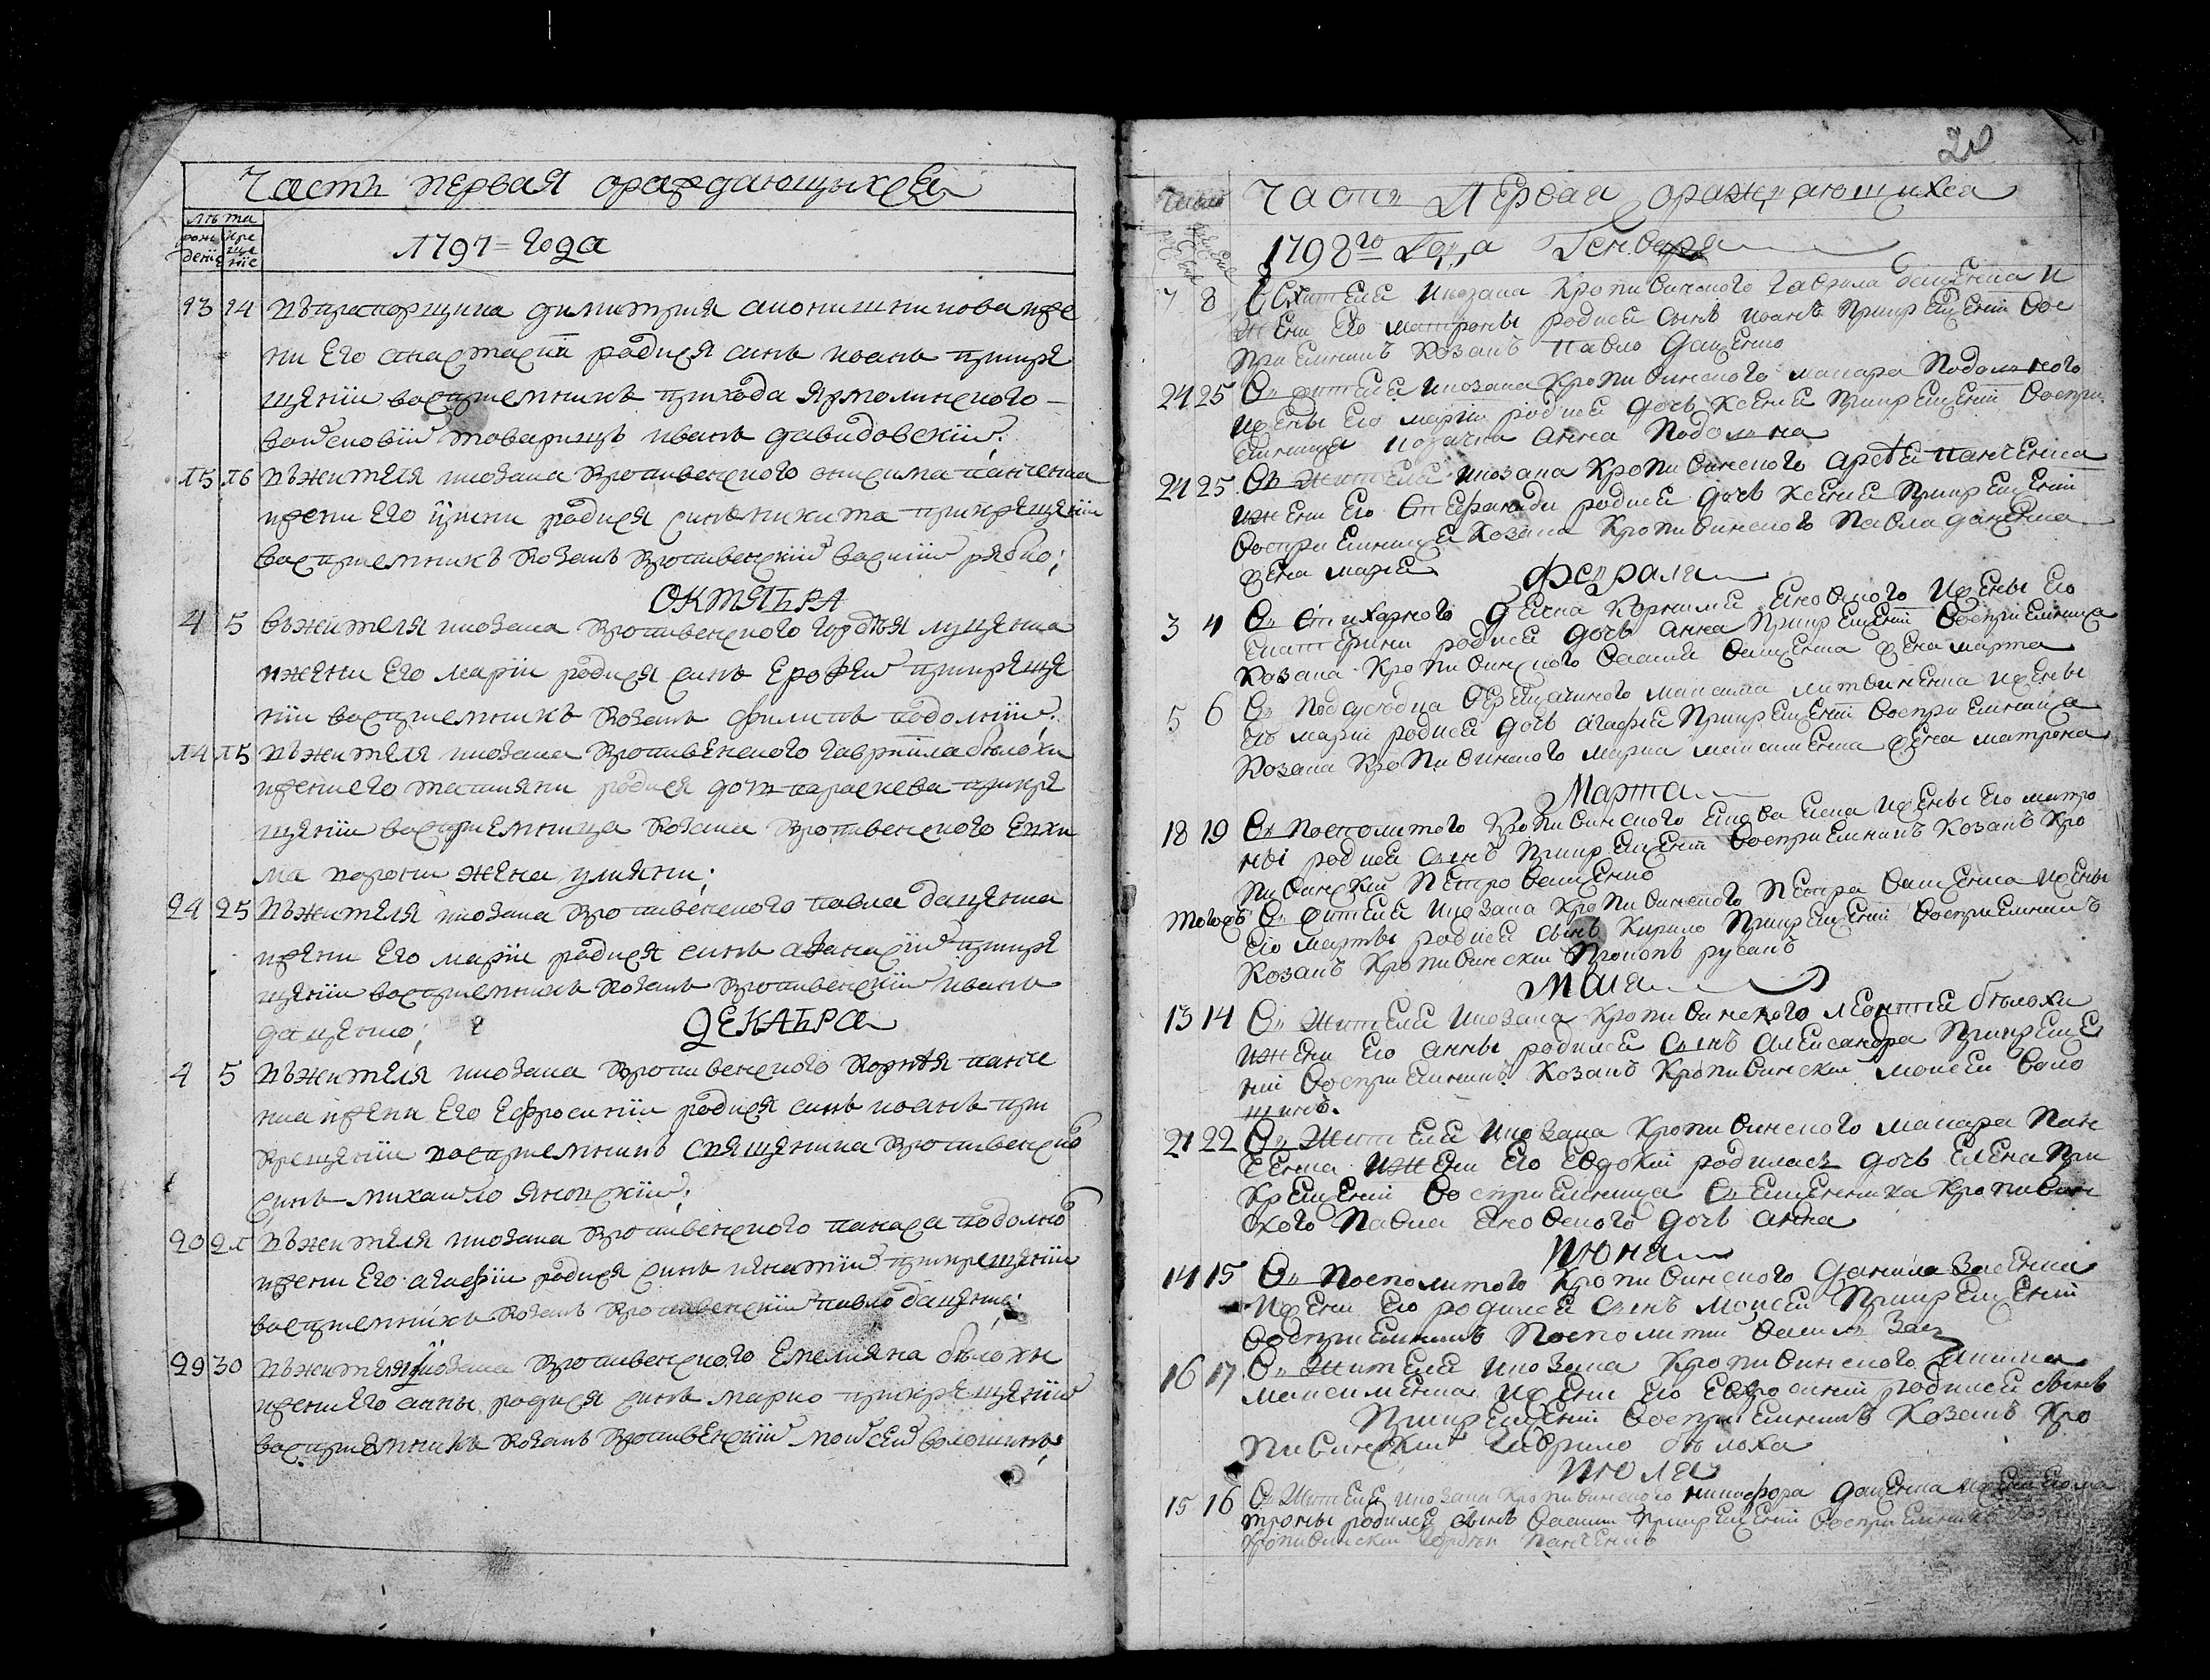 Часть первая ораждающыхся
лѣта
рож крe
дение ще
ние
1797 = года
23 24 въ прапорщика димитрия жe
ни Его анастасии родился синъ иоанъ при крe
щении восприемникъ прихода Ярмолинского
войсковий товарищъ иванъ давидовский.
15 16 въ жителя икозака Кропивенского онисима панченка
ижени Его родился синъ никита при крещении
восприемникъ Козакъ Кропивенский василий рябко;
ОКТЯБРА
4 5 въ жителя икозака Кропивенского гордѣя луценка
ижени Его марии родился синъ Ерофей при креще
нии восприемникъ Козакъ филипъ подолний.
14 15 въ жителя икозака Кропивенского гавриила бѣлохи
ижени Его татияни родился дочь параскева при крe
щении восприемница Козака Кропивенского Ехи
ма жена улияни;
24 25 въ жителя икозака Кропивенского павла даценка
ижени Его марии родился синъ афанасий при крe
щении восприемникъ Козакъ Кропивенский иванъ
даценко;
ДЕКАБРА
4 5 въ жителя икозака Кропивенского Корнѣя панче
нка ижени Его Ефросинии родился синъ иоанъ при
крещении восприемникъ священика Кропивенско
синъ михайло яновский.
20 21 въ жителя икозака Кропивенского панаса подолно
ижени Его агафии родился синъ игнатий при крещении
восприемникъ Козакъ Кропивенский павло даценко.
29 30 въ жителя икозака Кропивенского Емелияна бѣлохи
ижени Его анны родился синъ марко при крещении
восприемникъ Козакъ Кропивенский мойсей волошинъ
20
Число Часть Первая ораждающихса
1798го Года Генваря
7 8 В жителя икозака Кропивинского Гаврила даценка и
жени Его матроны родися сынъ иоанъ При крещении вос
приемникъ Козакъ павло даценко
24 25 Въ жителя икозака Кропивинского макара Подолного
ижены Его марии родися дочъ Ксения При крещении воспри
емница козачка анна Подолна
24 25 Въ Жителя икозака Кропивинского панченка
ижени Его Стефаниди родися дочъ Ксения При крещении
восприемница Козака Кропивинского Павла даценка
жена мария
Февраля
3 4 Въ Стихарного Дячка Корнилия Яновского ижены Его
Екатерини родися дочъ анна При крещении восприемница
Козака Кропивинского василия жена марта
5 6 Въ Подсусѣдка максима литвиненка ижены
Его марии родися дочъ агафия При крещении восприемница
Козака Кропивинского марка жена матрона
Марта
18 19 Въ Посполитого Кропивинского ижены Его матро
ны родися сынъ При крещении восприемникъ Козакъ Кро
пивинский Петро ващенко
Тогожъ Въ жителя икозака Кропивинского Петра ващенка ижены
Его марфы родися сынъ Кирило При крещении восприемникъ
Козакъ Кропивински Прокопъ русакъ
Маия
13 14 Въ Жителя икозака Кропивинского леонтия бѣлохи
ижени Его анны родися сынъ александра При креще
нии восприемникъ Козакъ Кропивински мойсеи воло
шинъ.
21 22 Въ Жителя икозака Кропивинского макара Пан
ченка ижени Его Евдокии родилась дочъ Елена При
крещении восприемница Священика Кропивин
ского Павла Яновского дочъ анна
Июня
14 15 Въ Посполитого Кропивинского данила Заеенка
ижени Его родися сынъ мойсеи При крещении
восприемникъ Посполити василъ Заец
16 17 Въ Жителя икозака Кропивинского
максименка ижени Его Евфросинии родися сынъ
При крещении восприемникъ Козакъ Кро
пивински Гаврило бѣлоха
Июля
15 16 Въ Жителя икозака Кропивинского никифора даценка ижени Его ма
троны родися сынъ василии При крещении восприемникъ Козакъ
Кропивински Панченко